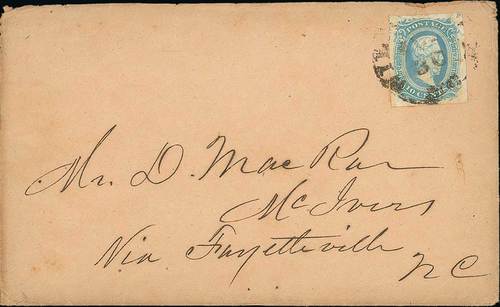 POSTAGE
10 CENTS
Mr. D. MacRae
McIvers
Via Fayetteville
N C